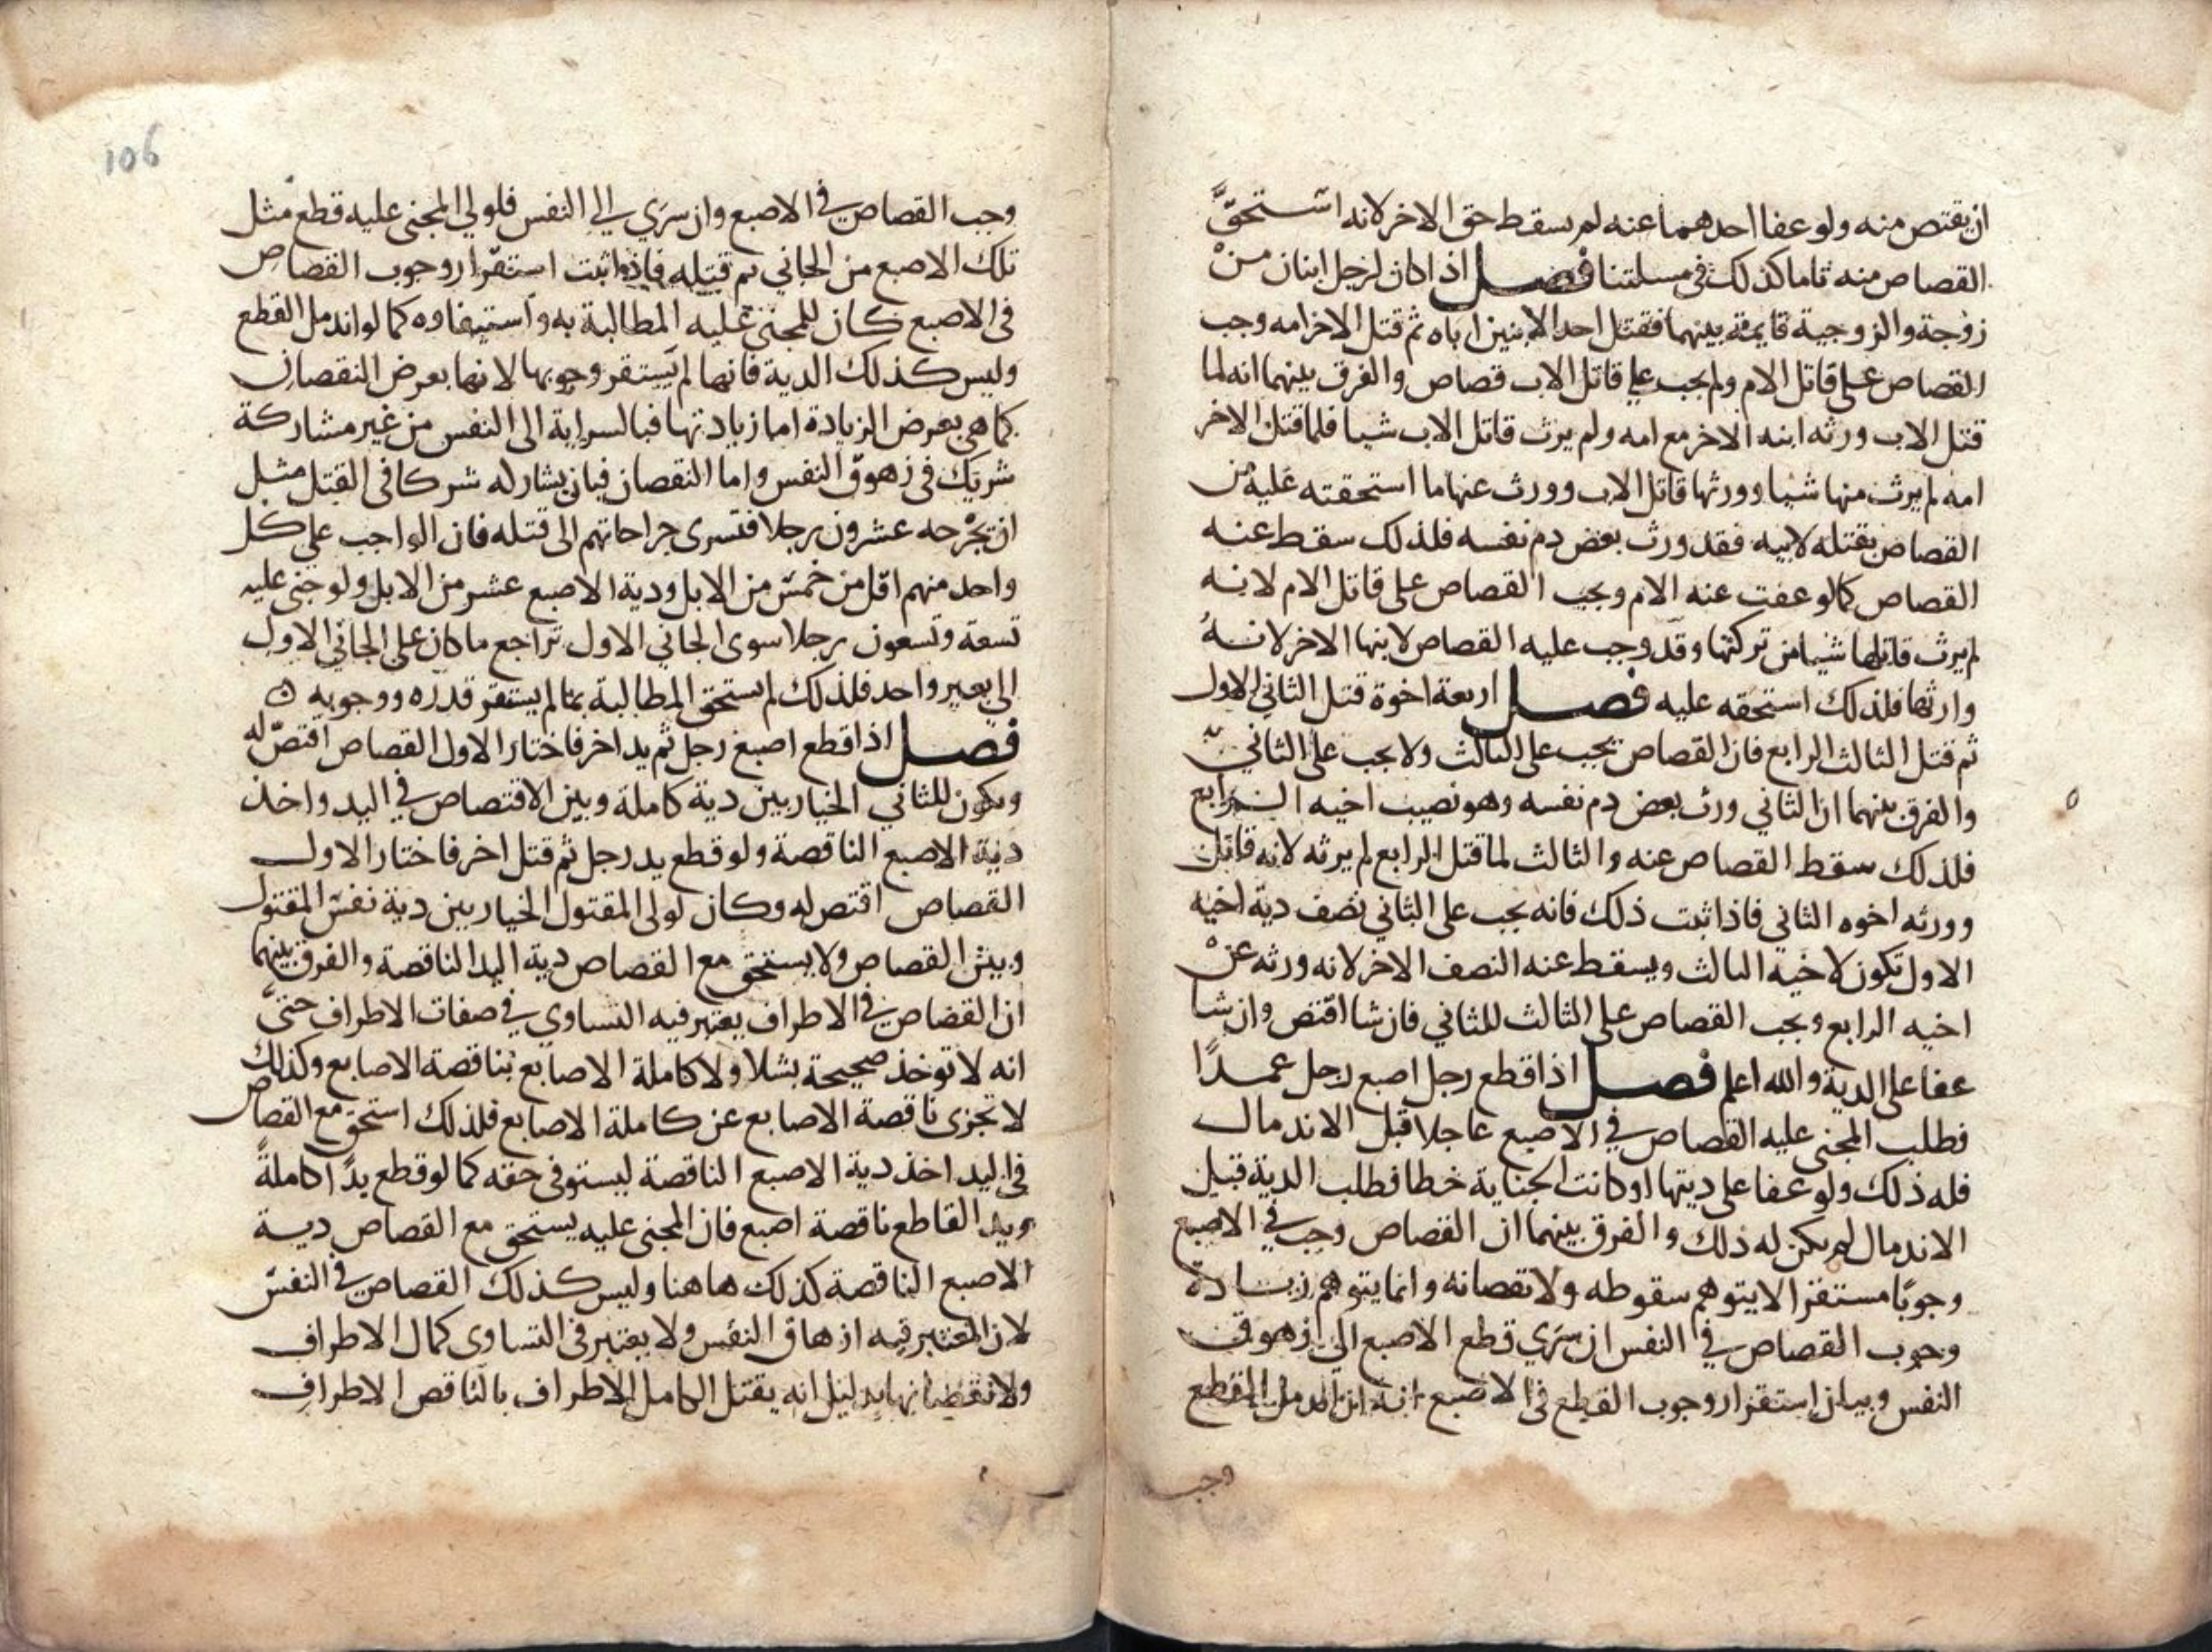 ان يقتص منه ولو عفا احدهما عنه لم يسقط حق الاخر لانه استحق
القصاص منه تاما كذلك في مسلتنا فصل اذا كان لرجل ابنان من
زوجة والزوجية قايمة بينهما فقتل احد الابنين اباه ثم قتل الاخر امه وجب
القصاص على قاتل الام ولم يجب على قاتل الاب قصاص والفرق بينهما انه لما
قتل الاب ورثه ابنه الاخر مع امه ولم يرث قاتل الاب شيا فلما قتل الاخر
امه لم يرث منها شيا وورثها قاتل الاب وورث عنها ما استحقته عليه من
القصاص بقتله لابيه فقد ورث بعض دم نفسه فلذلك سقط عنه
القصاص كما لو عفت عنه الام ويجب القصاص على قاتل الام لانه
لم يرث قاتلها شيا من تركتها وقد وجب عليه القصاص لابنها الاخر لانه
وارثها فلذلك استحقه عليه فصل اربعة اخوة قتل الثاني الاول
ثم قتل الثالث الرابع فان القصاص يجب على الثالث ولا يجب على الثاني
والفرق بينهما ان الثاني ورث بعض دم نفسه وهو نصيب اخيه الرابع
فلذلك سقط القصاص عنه والثالث لما قتل الرابع لم يرثه لانه قاتل
وورثه اخوه الثاني فاذا ثبت ذلك فانه يجب على الثاني نصف دية اخيه
الاول تكون لاخيه الثالث ويسقط عنه النصف الاخر لانه ورثه عن
اخيه الرابع ويجب القصاص على الثالث للثاني فان شا اقتص وان شا
عفا على الدية والله اعلم فصل اذا قطع رجل اصبع رجل عمدًا
فطلب المجنى عليه القصاص في الاصبع عاجلا قبل الاندمال
فله ذلك ولو عفا على ديتها او كانت الجناية خطا فطلب الدية قبل
الاندمال لم يكن له ذلك والفرق بينهما ان القصاص وجب في الاصبع
وجوبًا مستقرا لا يتوهم سقوطه ولا نقصانه وانما يتوهم زيادة
وجوب القصاص في النفس ان سري قطع الاصبع الى ازهوق
النفس وبيان استقرار وجوب القطع في الاصبع انه ان اندمل القطع
وجب
106
وجب القصاص في الاصبع وان سري الى النفس فلولي المجنى عليه قطع مثل
تلك الاصبع من الجاني ثم قتله فاذا ثبت استقرار وجوب القصاص
في الاصبع كان للمجنى عليه المطالبة به واستيفاوه كما لو اندمل القطع
وليس كذلك الدية فانها لم يستقر وجوبها لانها بعرض النقصان
كما هي بعرض الزيادة اما زيادتها فبالسراية الى النفس من غير مشاركة
شريك في زهوق النفس واما النقصان فبان يشارك شركا في القتل مثل
ان يجرحه عشرون رجلا فتسرى جراحاتهم الى قتله فان الواجب على كل
واحد منهم اقل من خمس من الابل ودية الاصبع عشر من الابل ولو جنى عليه
تسعة وتسعون رجلا سوى الجاني الاول تراجع ما كان على الجاني الاول
الى بعير واحد فلذلك لم يستحق المطالبة بما لم يستقر قدره ووجوبه
فصل اذا قطع اصبع رجل ثم يد اخر فاختار الاول القصاص اقتص له
ويكون للثاني الخيار بين دية كاملة وبين الاقتصاص في اليد واخذ
دية الاصبع الناقصة ولو قطع يد رجل ثم قتل اخر فاختار الاول
القصاص اقتص له وكان لولى المقتول الخيار بين دية نفس المقتول
وبين القصاص ولا يستحق مع القصاص دية اليد الناقصة والفرق بينهما
ان القصاص في الاطراف يعتبر فيه التساوي في صفات الاطراف حتى
انه لا توخذ صحيحة بشلا ولا كاملة الاصابع بناقصة الاصابع وكذلك
لا تجزى ناقصة الاصابع عن كاملة الاصابع فلذلك استحق مع القصاص
في اليد اخذ دية الاصبع الناقصة ليستوفى حقه كما لو قطع يدًا كاملةً
ويد القاطع ناقصة اصبع فان المجنى عليه يستحق مع القصاص دية
الاصبع الناقصة كذلك هاهنا وليس كذلك القصاص في النفس
لان المعتبر فيه ازهاق النفس ولا يعتبر في التساوى كمال الاطراف
ولا نقصانها بدليل انه يقتل الكامل الاطراف بالناقص الاطراف